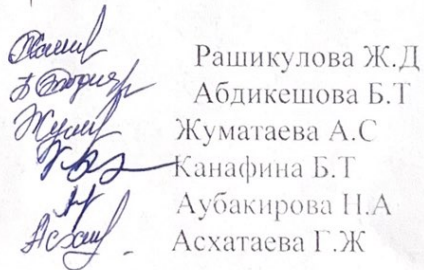 Рашикулова Ж.Д
Абдикешова Б.Т
Жуматаева А.С
Канафина Б.Т
Аубакирова Н.А
Асхатаева Г.Ж